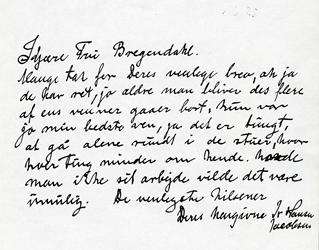 Kjære Fru Bregendahl.
Mange tak for Deres venlege brev, ak ja
de har ret, jo ældre man bliver des flere
af ens venner gaaer bort, hun var
jo min bedste ven, ja det er tungt,
at gå alene rundt i de stuer, hvor
hver ting minder om hende. havde
man ikke sit arbejde vilde det være
umulig. De venlegste hilsener
Deres hengivne Jr Hansen
Jacobsen